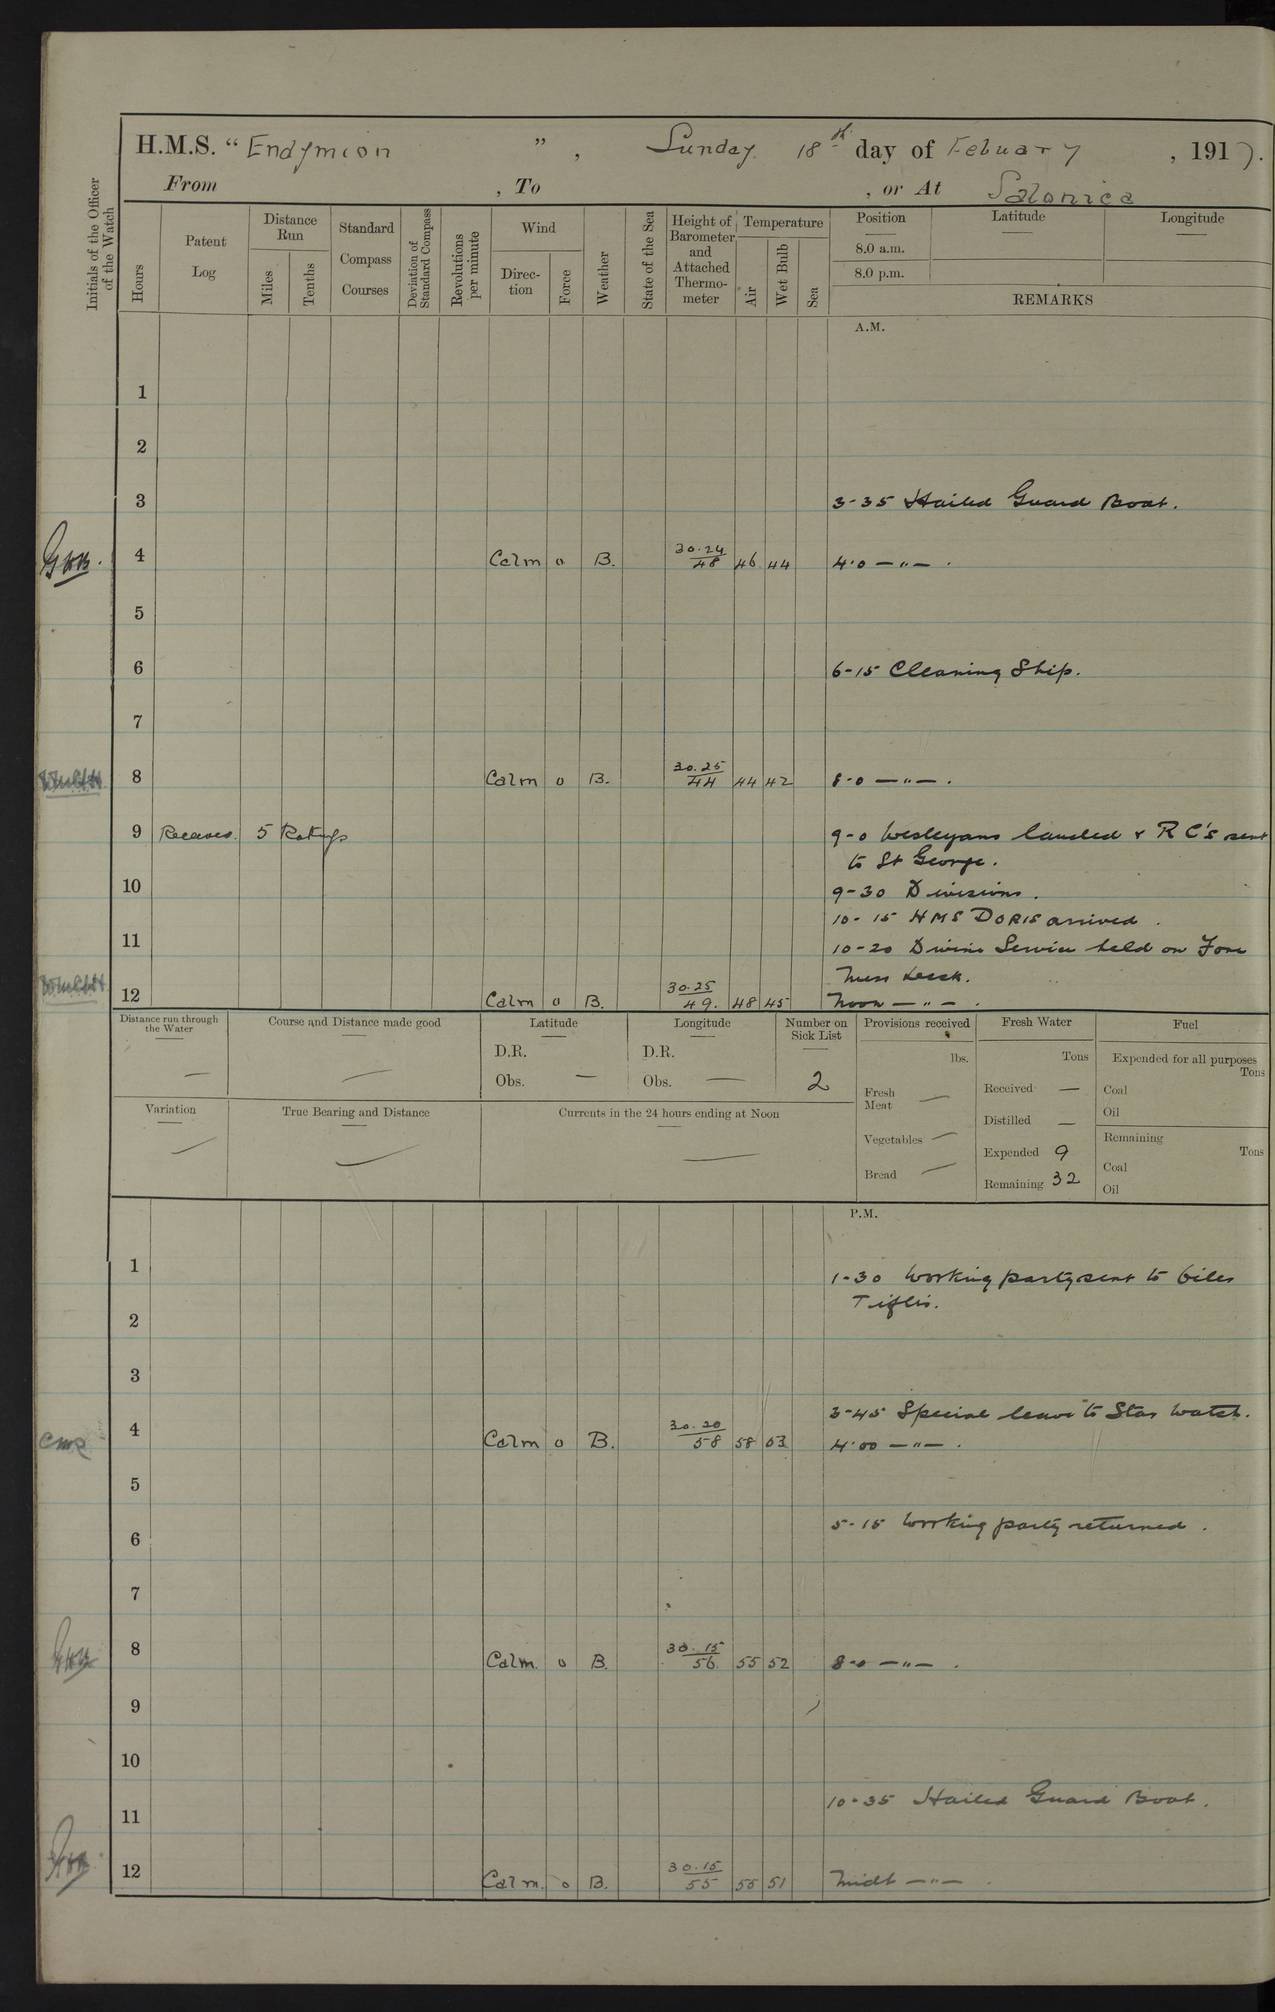 H.M.S. " Endymion ", Sunday 18th day of Febuary, 1917.
From , To , or At Salonica
Initials of the Officer of the Watch
Hours
Patent Log
Distance Run
Miles
Tenths
Standard Compass Courses
Deviation of Standard Compass
Revolutions per minute
Wind
Direction
Force
Weather
State of the Sea
Height of Barometer and Attached Thermometer
Temperature
Air
Wet Bulb
Sea
Position Latitude Longitude
8.0 a.m.
8.0 p.m.
REMARKS
A.M.
1
2
3 3-35 Hailed Guard Boat.
4 Calm 0 B. 30.24/48 46 44 4.0 — " — .
5
6 6-15 Cleaning Ship.
7
8 Calm 0 B. 30.25/44 44 42 8-0 — " — .
9 Receaved. 5 Ratings 9-0 Wesleyans landed & R C's sent
to St George.
10 9-30 Divisions.
10-15 HMS DORIS arrived.
11 10-20 Divine Service held on Fore
Mess Deck.
12 Calm 0 B. 30.25/49. 48 45 Noon — " — .
Distance run through the Water —
Course and Distance made good —
Latitude
D.R.
Obs. —
Longitude
D.R.
Obs. —
Number on Sick List
2
Provisions received
lbs.
Fresh Meat —
Vegetables —
Bread —
Fresh Water
Tons
Received —
Distilled —
Expended 9
Remaining 32
Fuel
Expended for all purposes
Tons
Coal
Oil
Remaining
Tons
Coal
Oil
Variation —
True Bearing and Distance —
Currents in the 24 hours ending at Noon —
P.M.
1 1-30 Working party sent to
Tiflis.
2
3
3-45 Special leave to Star Watch.
4 Calm 0 B. 30.20/58 58 53 4.00 — " — .
5
5-15 Working party returned.
6
7
8 Calm. 0 B. 30.15/56. 55 52 8-0 — " — .
9
10
10-35 Hailed Guard Boat.
11
12 Calm. 0 B. 30.15/55 55 51 Midt — " — .